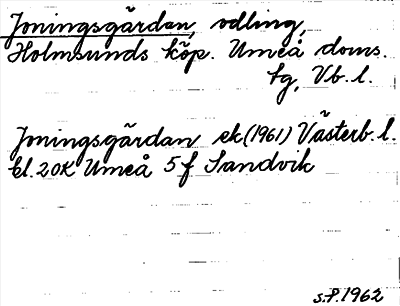 Joningsgärdan, odling,
Holmsunds köp. Umeå doms.
tg, Vb. l.
Joningsgärdan ek (1961) Västerb. l.
bl. 20K Umeå 5f Sandvik
s.P. 1962